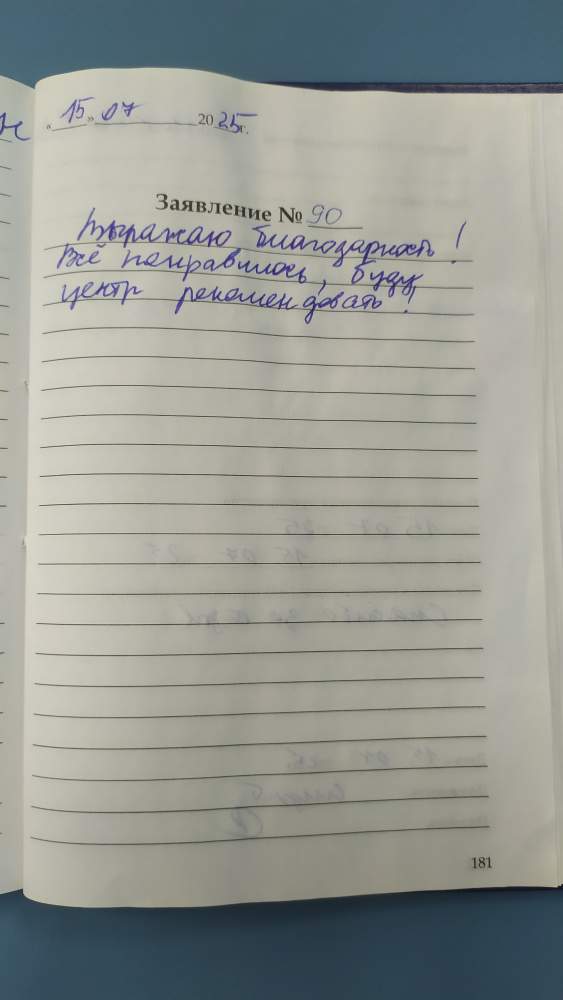 «15» 07 2025г.
Заявление № 90
Выражаю благодарность!
Всё понравилось, буду
центр рекомендовать!
181